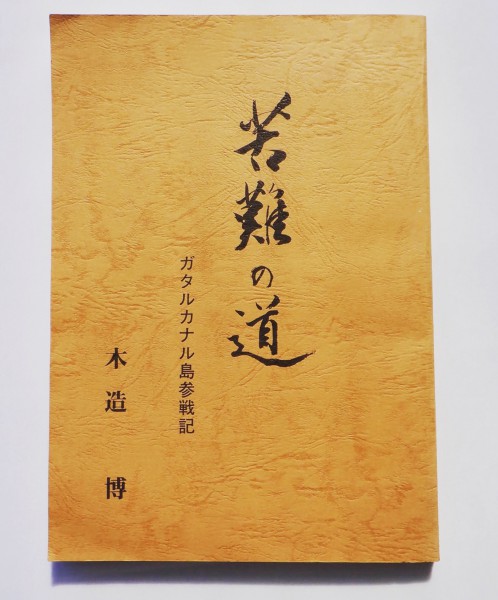 苦難の道
ガタルカナル島参戦記
木造 博